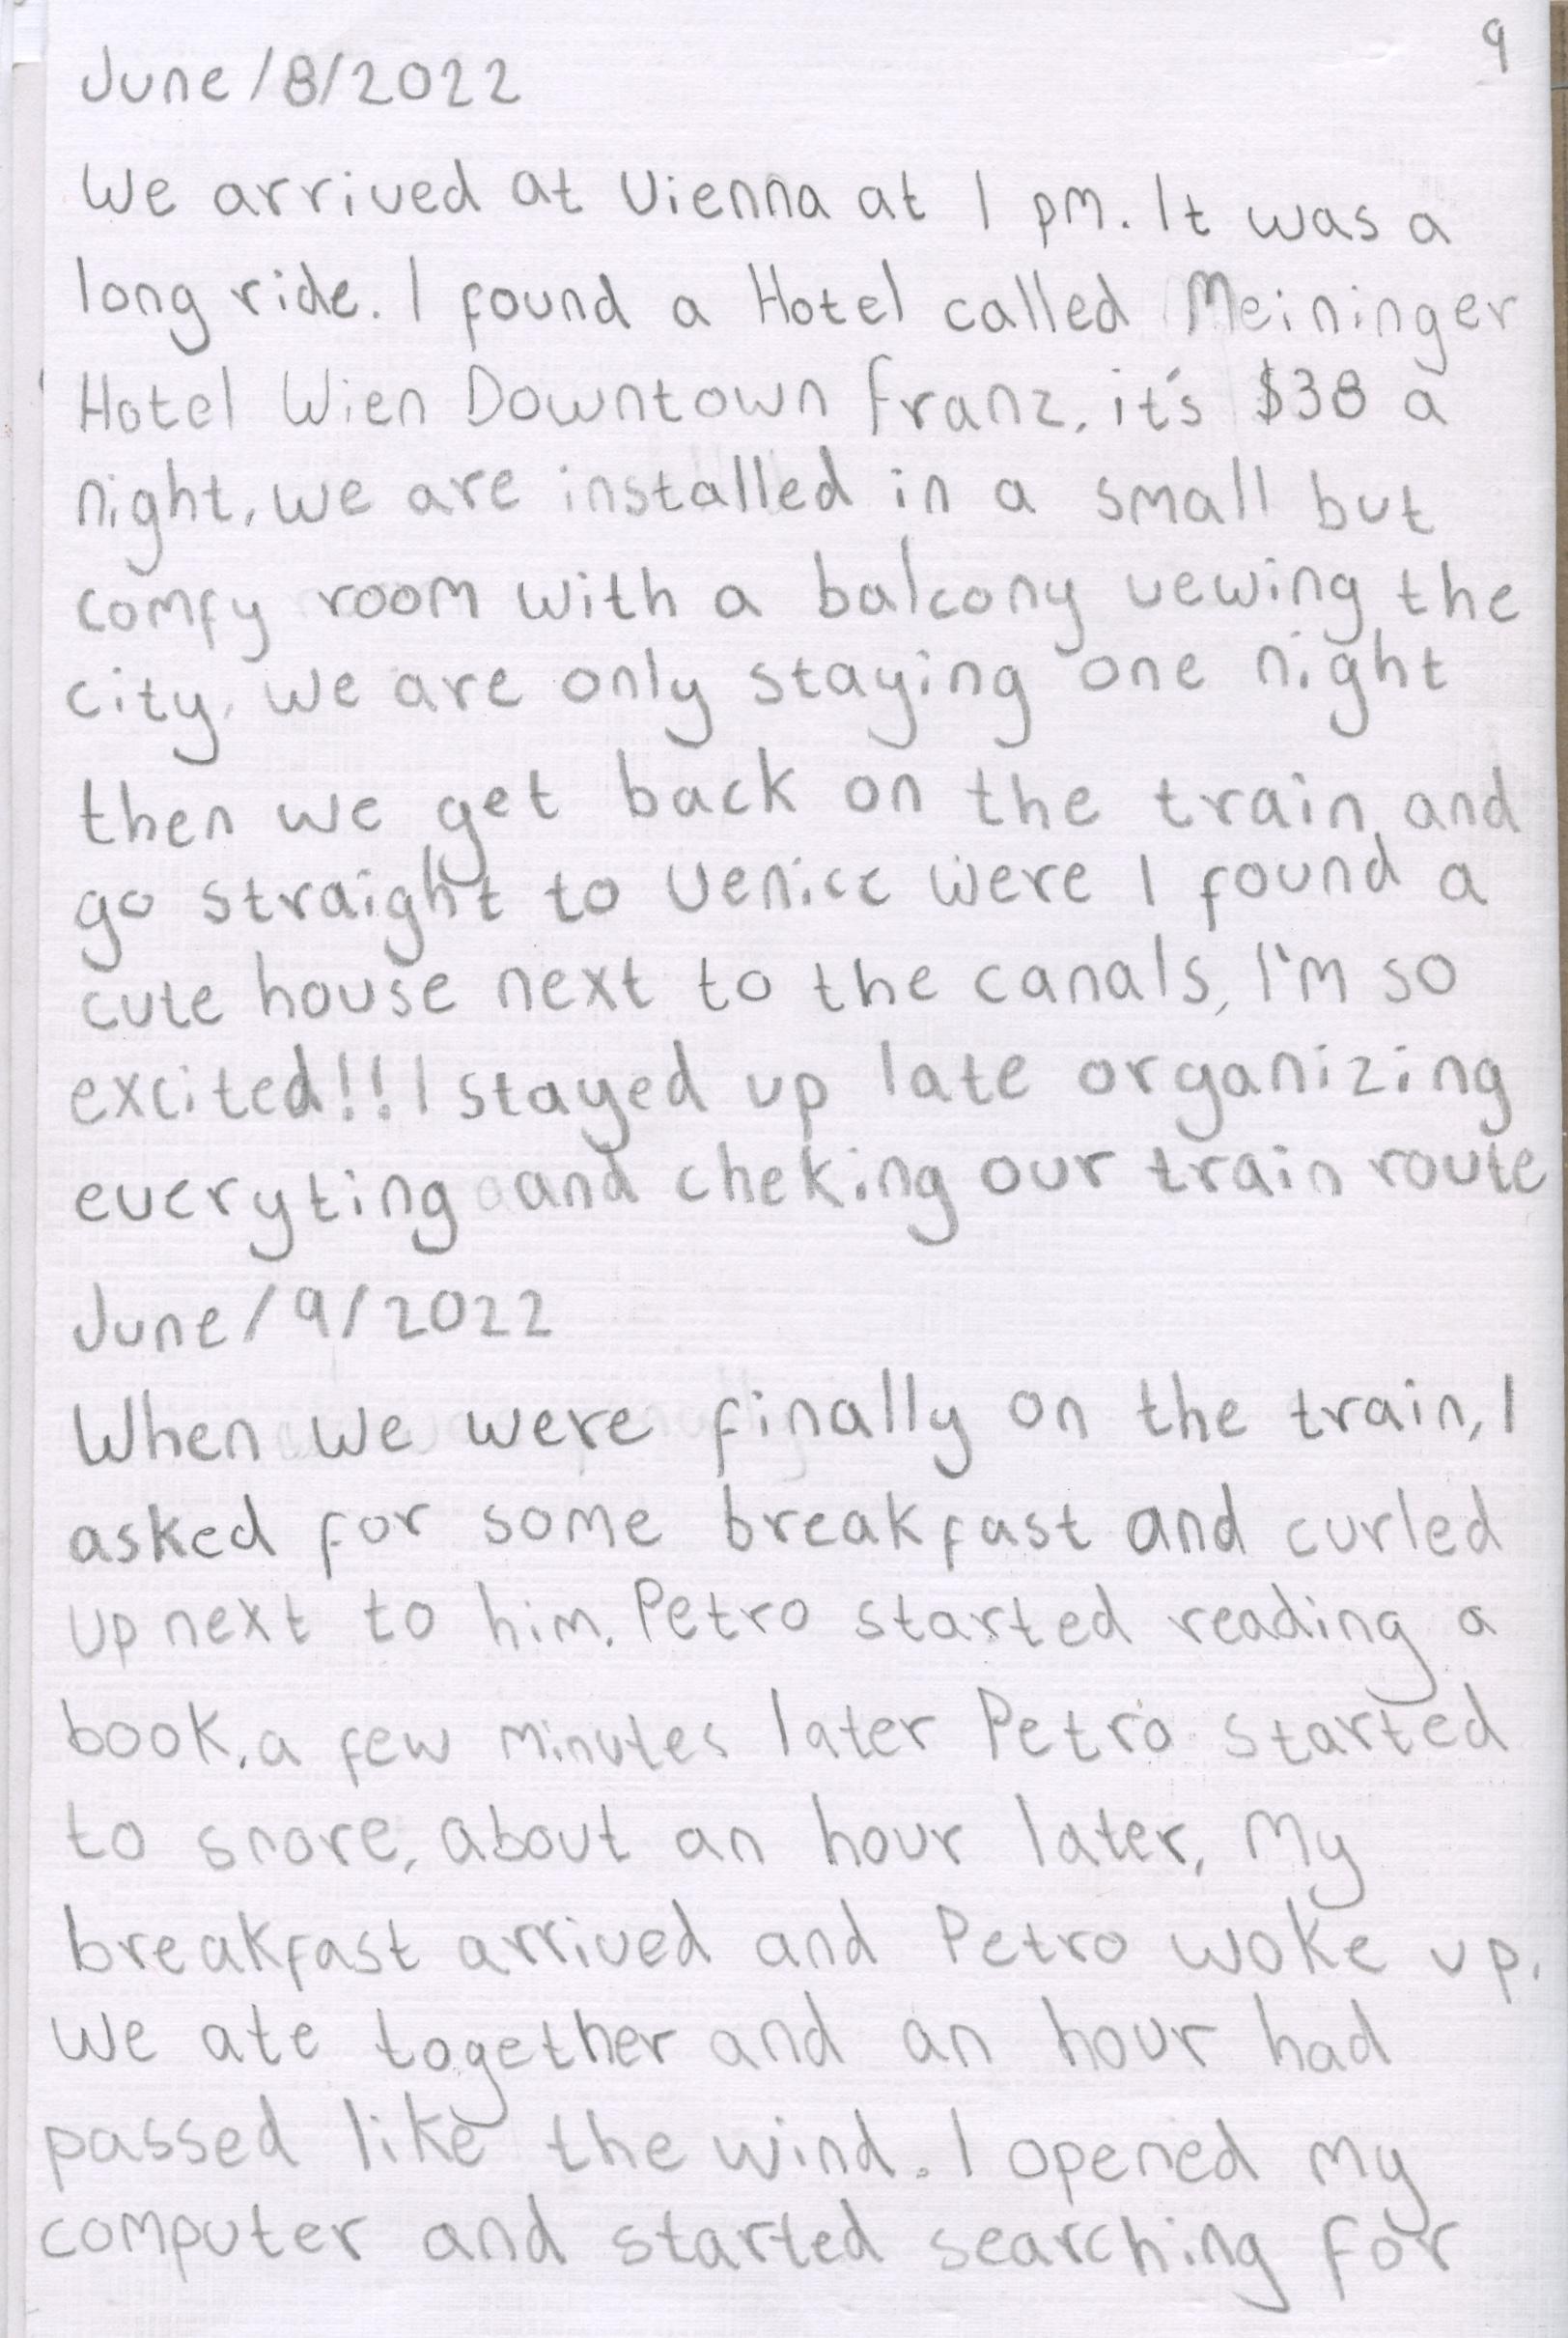 9
June/8/2022
We arrived at Vienna at 1 pm. It was a
long ride. I found a Hotel called Meininger
Hotel Wien Downtown franz, it's $38 a
night, we are installed in a small but
comfy room with a balcony vewing the
city, we are only staying one night
then we get back on the train, and
go straight to Venice were I found a
cute house next to the canals, I'm so
excited!!! I stayed up late organizing
everyting and cheking our train route
June/9/2022
When we were finally on the train, I
asked for some breakfast and curled
up next to him. Petro started reading a
book, a few minutes later Petro started
to snore, about an hour later, my
breakfast arrived and Petro woke up.
We ate together and an hour had
passed like the wind. I opened my
computer and started searching for